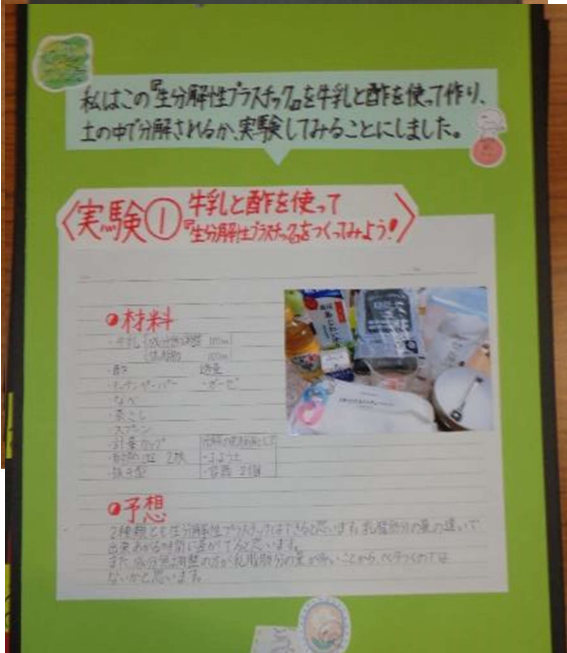 私はこの『生分解性プラスチック』を牛乳と酢を使って作り、
土の中で分解されるか、実験してみることにしました。
〈実験① 牛乳と酢を使って
『生分解性プラスチック』をつくってみよう!〉
材料
・牛乳 成分無調整
・酢 適量
・キッチンペーパー ・ガーゼ
なべ
茶こし
スプーン
計量カップ
・耐熱皿 2枚
・抜き型
予想
2種類とも生分解性プラスチックはできると思います。乳脂肪分の量の違いで
出来あがる時間に差がでると思います。
また、成分無調整の方が乳脂肪分の量が多いことから、ベタつくのでは
ないかと思います。